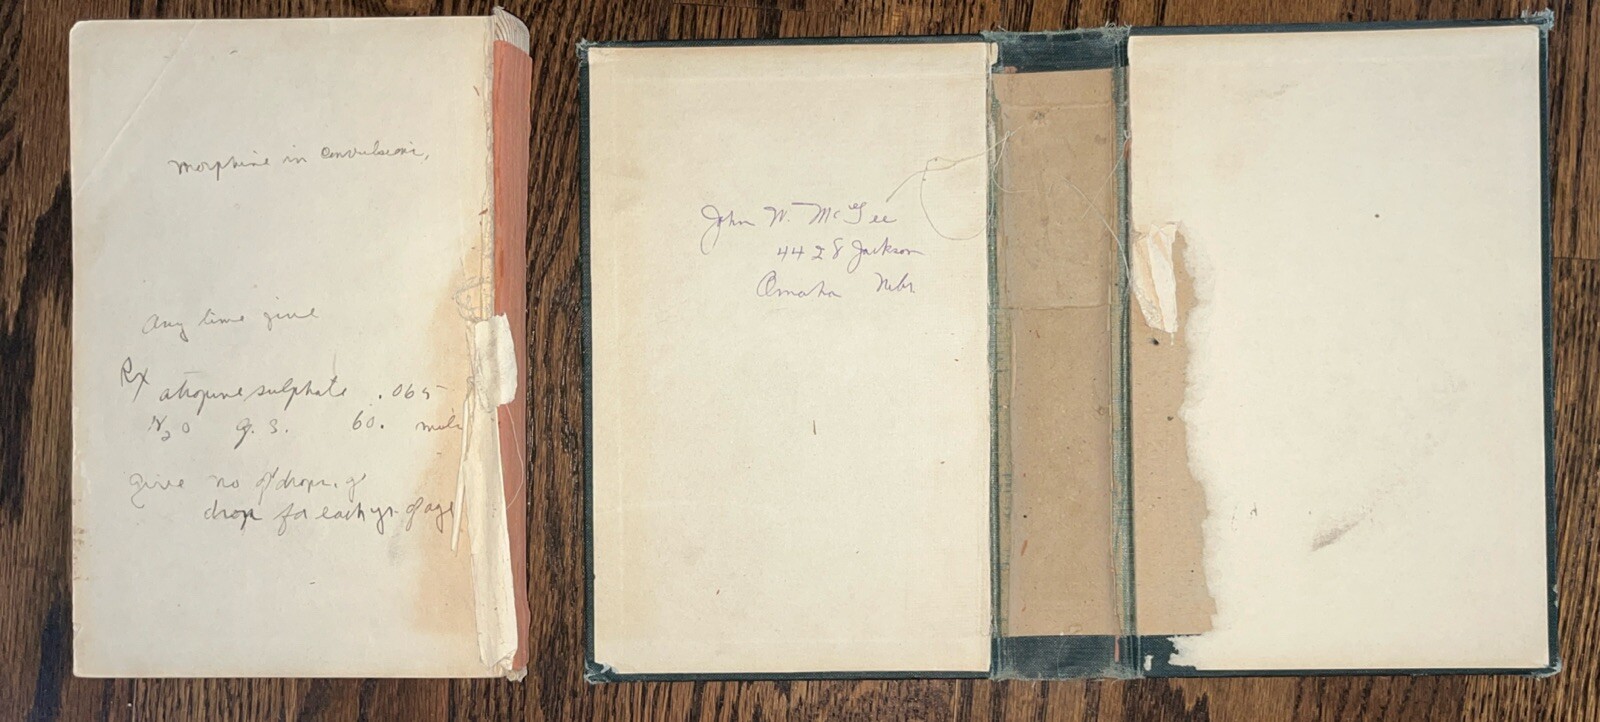 Morphine in convulsions,
Any time give
Rx atropine sulphate .065
H2O q.s. 60. mils
Give no of drops.
drop for each yr. of age
John W. McGee
4428 Jackson
Omaha Nebr